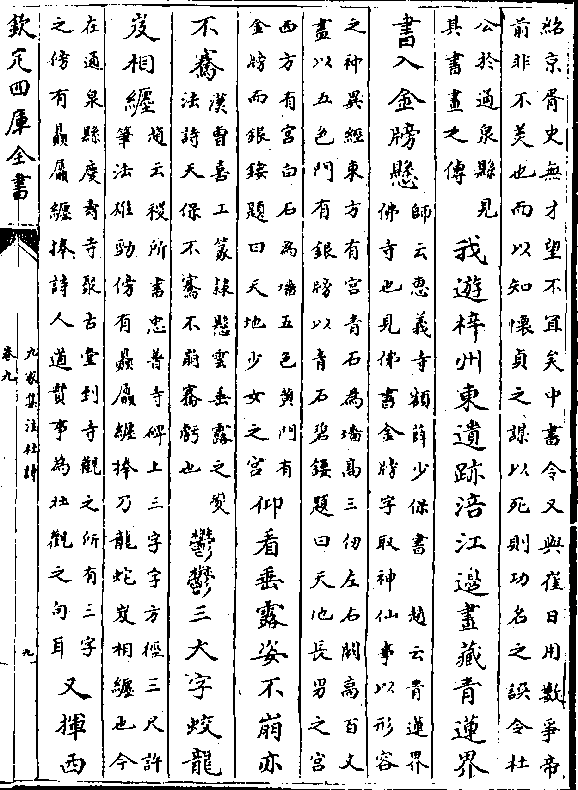 紹京胥史無才望不宜矣中書令又與崔日用數爭帝
前非不美也而以知懷貞之謀以死則功名之誤令杜
公於通泉縣見
其書畫之傳
我遊梓州東遺跡涪江邊畫藏青蓮界
書入金牓懸
師云惠義寺額薛少保書　趙云青蓮界
佛寺也見佛書金牓字取神仙事以形容
之神異經東方有宮青石為墻高三仞左右闕高百丈
畫以五色門有銀牓以青石碧鏤題曰天地長男之宮
西方有宮白石為墻五色黃門有
金牓而銀鏤題曰天地少女之宮
仰看垂露姿不崩亦
不騫
漢曹喜工篆隸懸雲垂露之勢
法詩天保不騫不崩騫虧也
鬱鬱三大字蛟龍
岌相纏
趙云稷所書忠普寺碑上三字字方徑三尺許
筆法雄勁傍有贔屭纏捧乃龍蛇岌相纏也今
在通泉縣慶壽寺聚古堂到寺觀之所有三字
之傍有贔屭纏捧詩人道實事為壯觀之句耳
又揮西
欽定四庫全書
九家集注杜詩
卷九
九